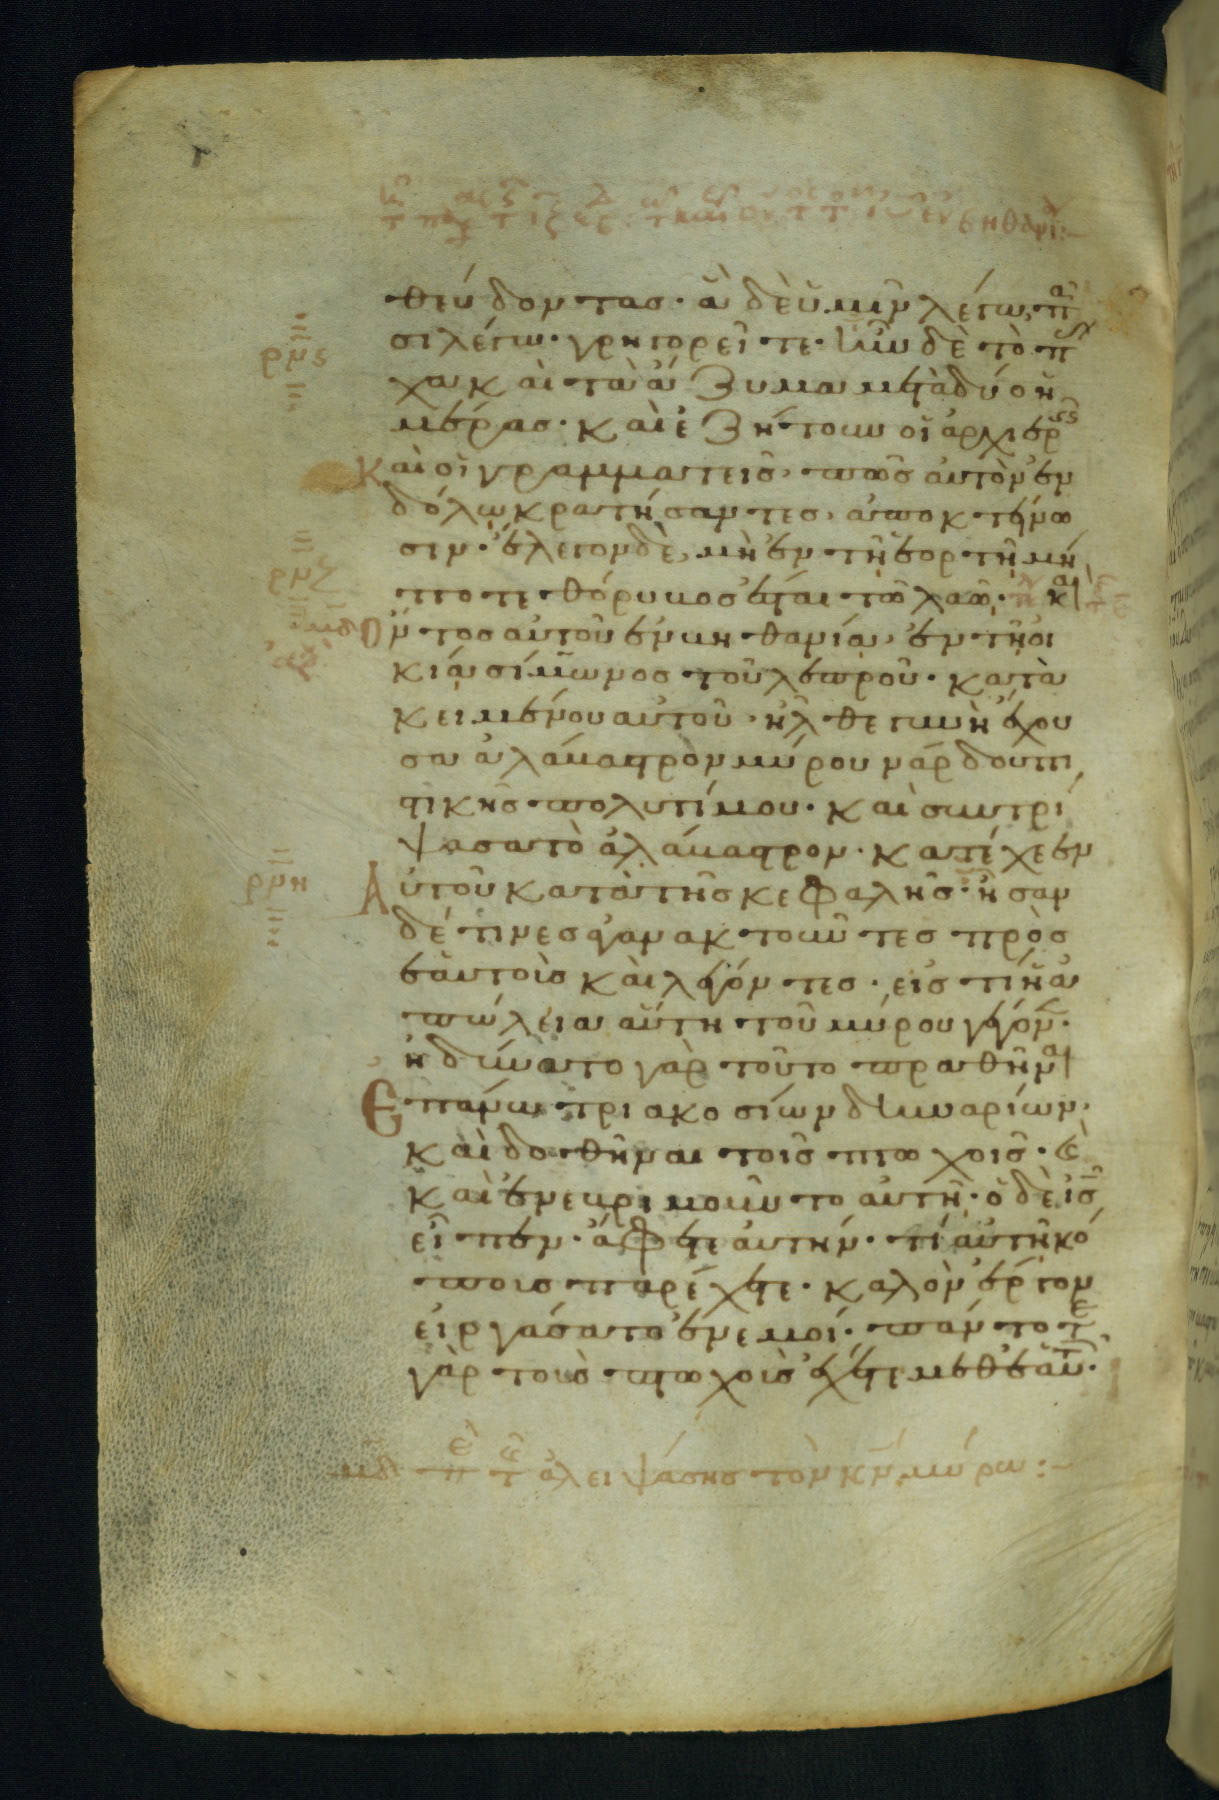 θεύδοντας· ἃ δὲ ὑμῖν λέγω, πᾶ
σι λέγω· γρηγορεῖτε· ἦν δὲ τὸ πάσ
χα καὶ τὰ ἄζυμα μετὰ δύο ἡ
μέρας· καὶ ἐζήτουν οἱ ἀρχιερεῖς
Καὶ οἱ γραμματεῖς, πῶς αὐτὸν ἐν
δόλω κρατήσαντες, ἀποκτείνω
σιν· ἔλεγον δὲ, μὴ ἐν τῇ ἑορτῇ μή
ποτε θόρυβος ἔσται τῶ λαῶ· καὶ
Ὄντος αὐτοῦ ἐν βηθανία, ἐν τῇ οἰ
κία σίμωνος τοῦ λεπροῦ· κατα
κειμένου αὐτοῦ· ἦλθε γυνὴ ἔχου
σα ἀλάβαστρον μύρου νάρδου πι
στικῆς πολυτίμου· καὶ συντρί
ψασα τὸ ἀλάβαστρον· κατέχεεν
Αὐτοῦ κατὰ τῆς κεφαλῆς· ἦσαν
δέ τινες ἀγανακτοῦντες πρὸς
ἑαυτοὺς καὶ λέγοντες· εἰς τί ἡ ἀ
πώλεια αὕτη τοῦ μύρου γέγονεν·
ἠδύνατο γὰρ τοῦτο πραθῆναι
Ἐπάνω τριακοσίων δηναρίων·
καὶ δοθῆναι τοῖς πτωχοῖς·
καὶ ἐνεβριμοῦντο αὐτῇ· ὁ δὲ ις
εἶπεν· ἄφετε αὐτήν· τί αὐτῇ κό
πους παρέχετε· καλὸν ἔργον
εἰργάσατο ἐν ἐμοί· πάντοτε
γὰρ τοὺς πτωχοὺς ἔχετε μεθ ἑαυτῶν·
ρμς
ρμζ
μδ
ρμη
μδ πε τ ἀλειψάσης τὸν κν μύρω:~